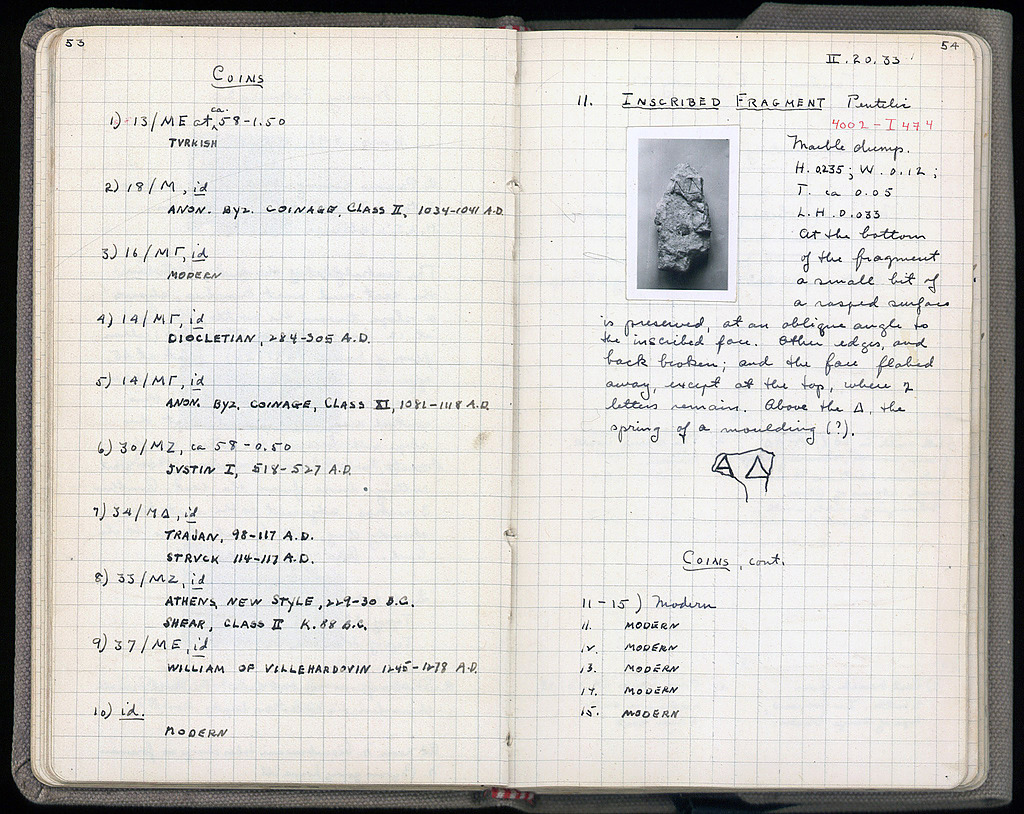 53
COINS
1) 13/ME at ca. 58-1.50
TVRKISH
2) 18/M, id
ANON. BYZ. COINAGE, CLASS II, 1034-1041 A.D.
3) 16/MΓ, id
MODERN
4) 14/MΓ, id
DIOCLETIAN, 284-305 A.D.
5) 14/MΓ, id
ANON. BYZ. COINAGE, CLASS XI, 1081-1118 A.D.
6) 30/MZ, ca 58-0.50
JVSTIN I, 518-527 A.D.
7) 34/MΔ, id
TRAJAN, 98-117 A.D.
STRVCK 114-117 A.D.
8) 33/MZ, id
ATHENS, NEW STYLE, 229-30 B.C.
SHEAR, CLASS II K. 88 B.C.
9) 37/ME, id
WILLIAM OF VILLEHARDOVIN 1245-1278 A.D.
10) id.
MODERN
54
II.20.33
11. INSCRIBED FRAGMENT Pentelic
4002-I 474
Marble dump.
H. 0.235; W. 0.12;
T. ca 0.05
L.H. 0.033
At the bottom
of the fragment
a small bit of
a rasped surface
is preserved, at an oblique angle to
the inscribed face. Other edges, and
back broken; and the face flaked
away, except at the top, where 2
letters remain. Above the Δ, the
spring of a moulding (?).
A Δ
COINS, cont.
11-15) Modern
11. MODERN
12. MODERN
13. MODERN
14. MODERN
15. MODERN